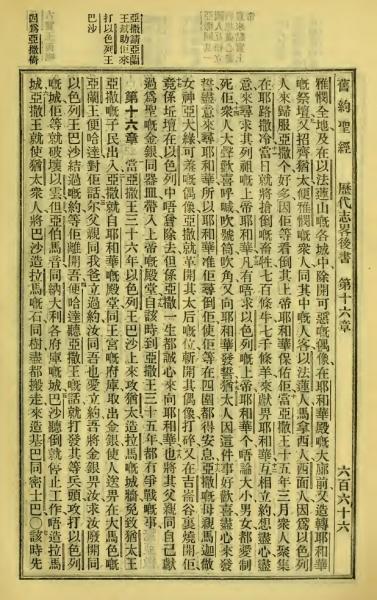 舊約聖經 歷代志畧後書 第十六章 六百六十六
雅憫全地及在以法蓮山嘅各城中除開可惡嘅偶像在耶和華殿嘅大廊前又造轉耶和華
嘅祭壇又招齊猶太便雅憫嘅衆人同其中嘅人客以法蓮人馬拿西人西面人因爲以色列
人來歸服亞撒个好多因佢等看倒其上帝耶和華保佑佢當亞撒王十五年三月衆人聚集
在耶路撒冷當日就將搶倒嘅畜牲七百條牛七千條羊來獻畀耶和華互相立約想盡心盡
意來尋求其列祖嘅上帝耶和華凡有唔求以色列嘅上帝耶和華个唔論大小男女都愛制
死佢衆人大聲歡喜呼喊吹號筒吹角又向耶和華發誓猶太人因這件事好歡喜盡心來發
誓盡意來尋耶和華所以耶和華准佢尋倒佢使佢等在四圍都得安息亞撒嘅母親馬迦做
女神亞大綠可羞嘅偶像亞撒就革開其太后嘅位斬開其偶像打碎又在吉崙谷裏燒開佢
竟係坵壇在以色列中唔曾除去但係亞撒一生都誠心來向耶和華也將其父親同自己獻
過爲聖嘅金銀同器皿帶入上帝嘅殿堂自該時到亞撒王三十五年都有爭戰嘅事
第十六章 當亞撒王三十六年以色列王巴沙上來攻猶太造拉馬嘅城牆免致猶太王
亞撒嘅子民出入亞撒就自耶和華嘅殿堂同王宮嘅府庫取出金銀使人送畀在大馬色嘅
亞蘭王便哈達對佢話尔父親同我爸立過約汝同吾也愛立約吾將金銀畀汝求汝廢開同
以色列王巴沙結過嘅約等佢離開吾便哈達聽亞撒王嘅話就打發其等兵頭攻打以色列
嘅城佢等就破壞以云但亞伯馬音同納大利各府庫嘅城巴沙聽倒就停止工作唔造拉馬
城亞撒王就使猶太衆人將巴沙造拉馬嘅石同樹盡都搬走來造基巴同密士巴○該時先
亞撒請亞蘭
王幇助佢來
打以色列王
巴沙
因爲亞撒倚